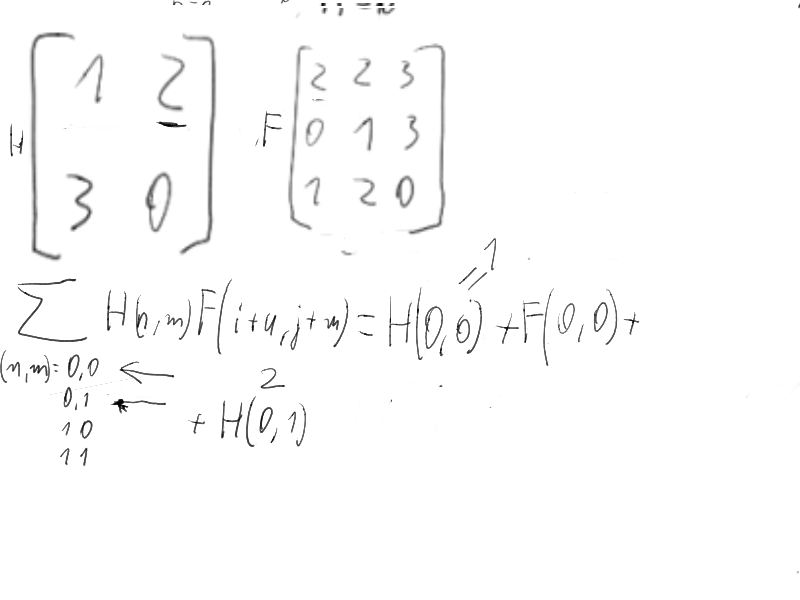 H [1 2
3 0]
F [2 2 3
0 1 3
1 2 0]
1
∑ H(n,m)F(i+n,j+m) = H(0,0) + F(0,0) +
(n,m)= 0,0 ←
2
0,1 ← + H(0,1)
1 0
1 1